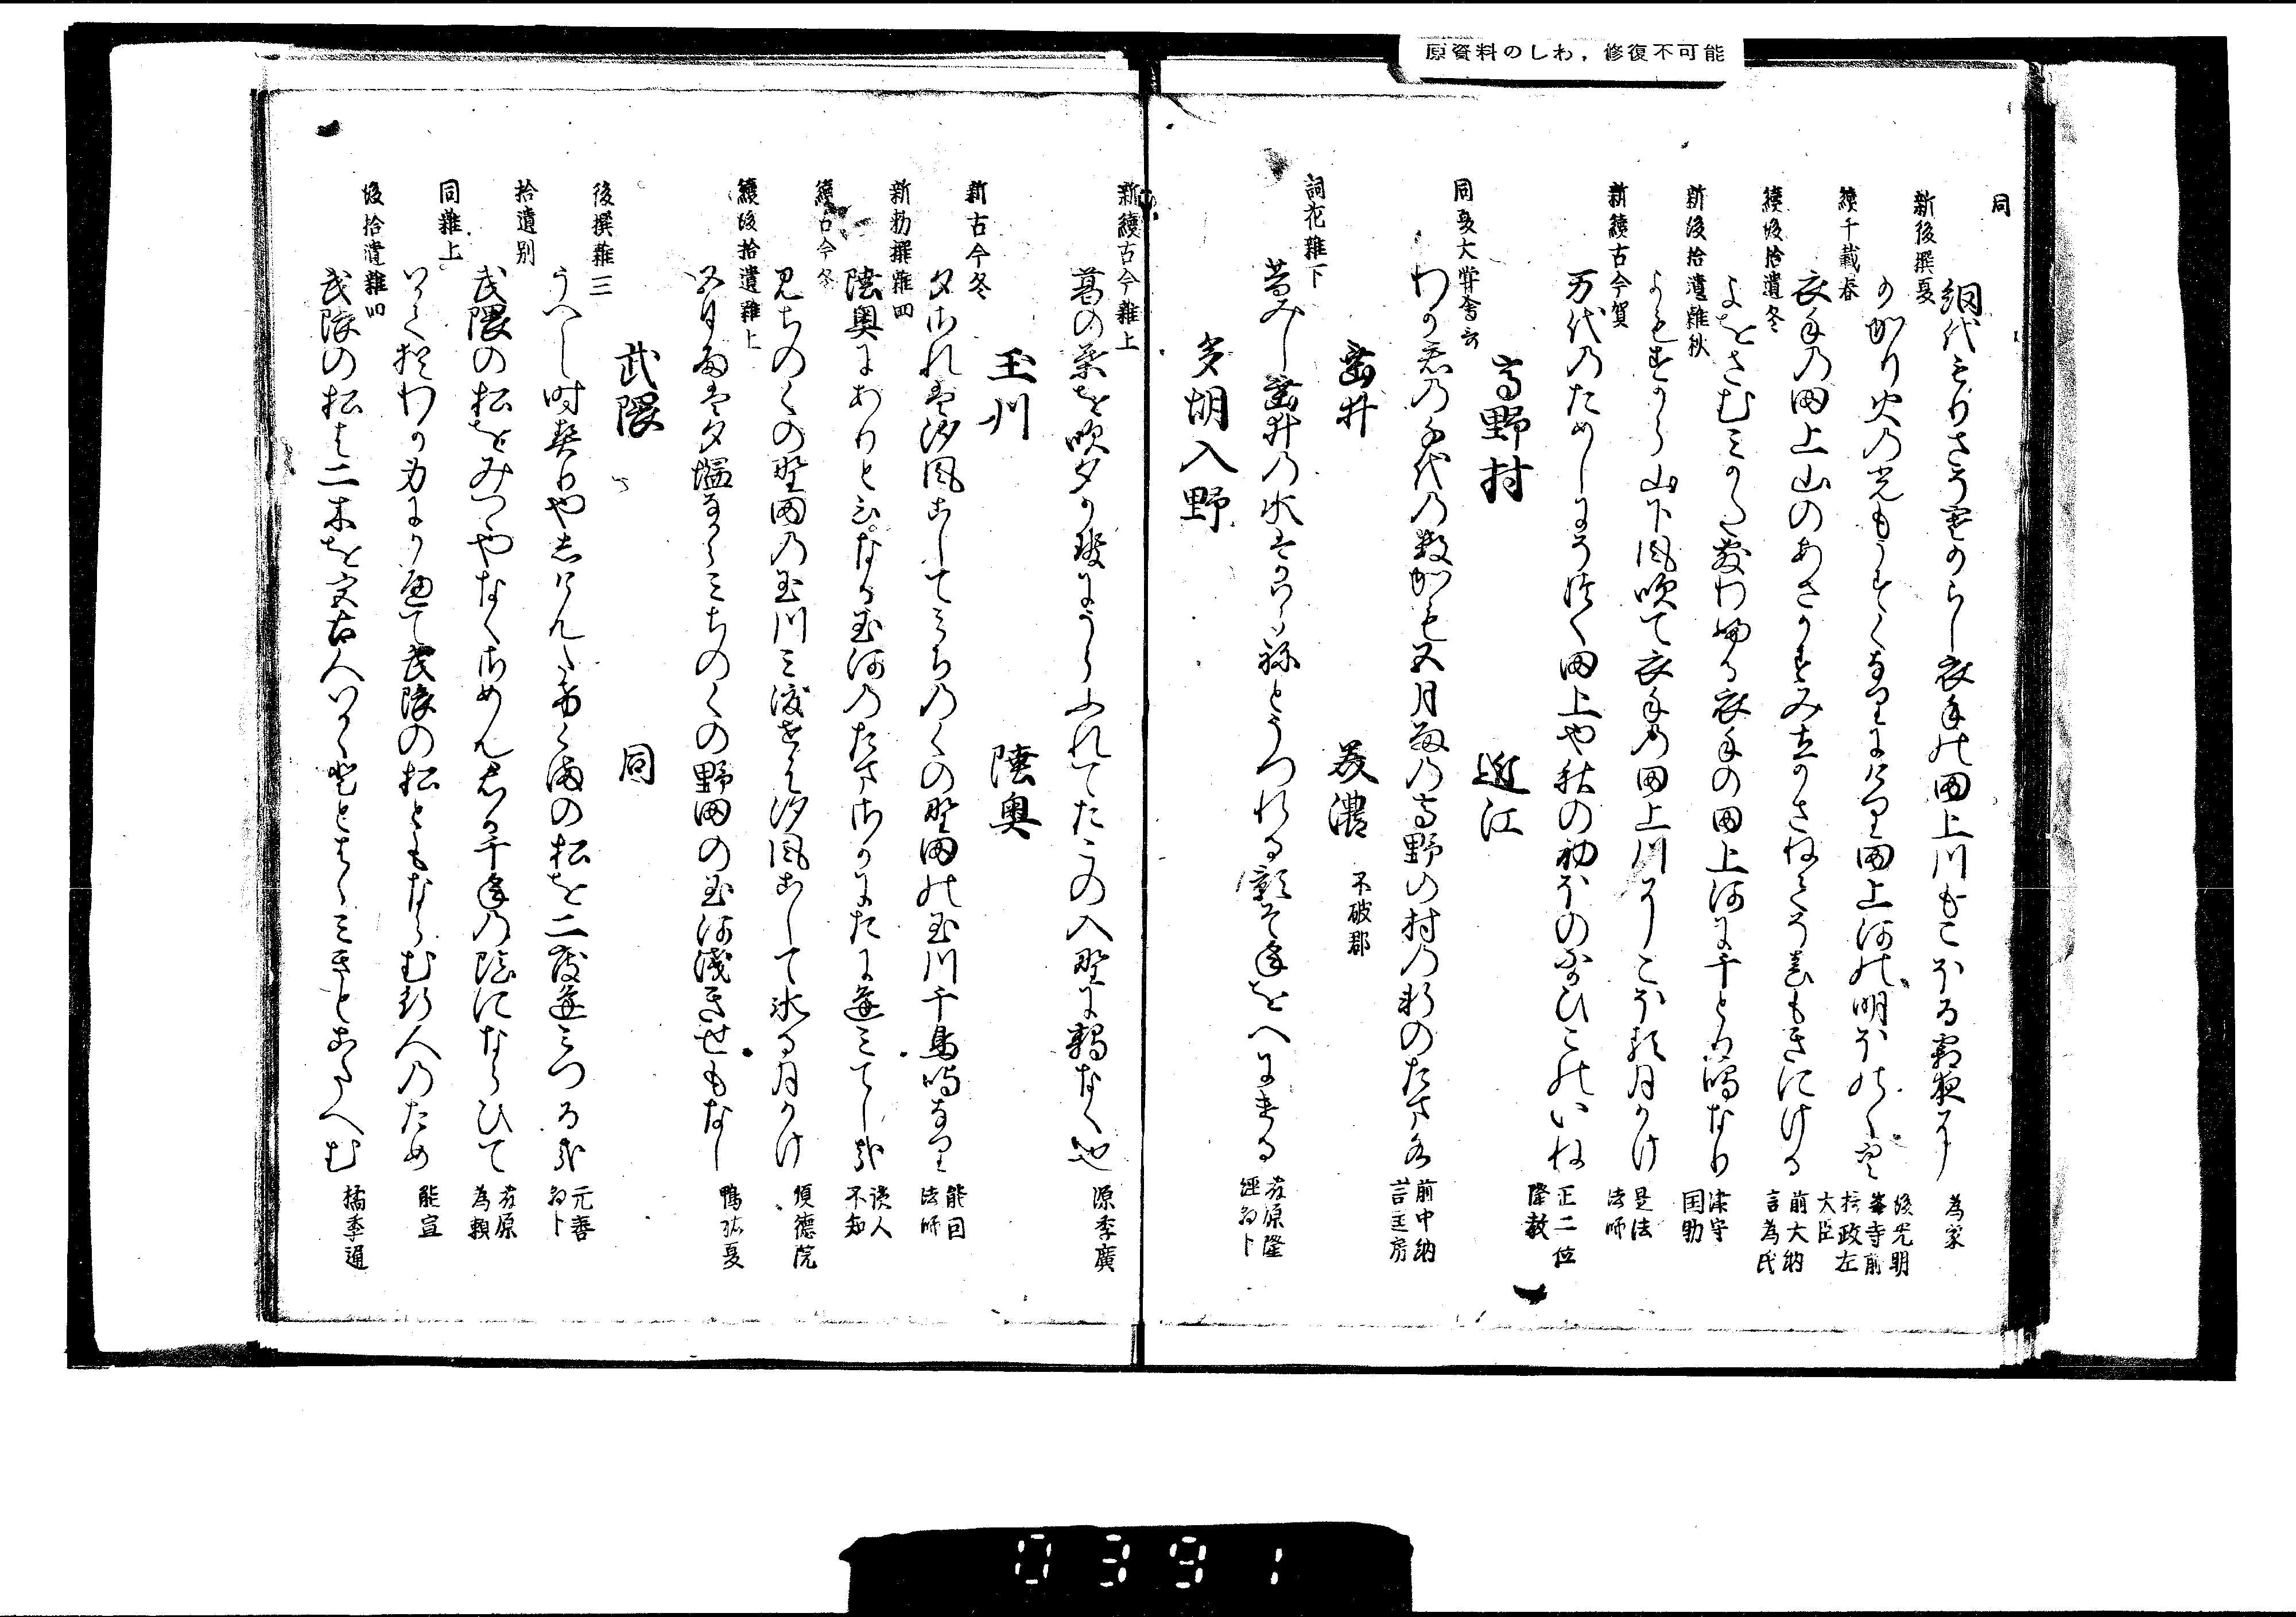 原資料のしわ，修復不可能
同
網代もりさそ寒からし衣手の田上川もこほる霜夜に
為家
新後撰夏
かゝり火の光もうすく成にけり田上河の明ほのゝ空
後光明峯寺前摂政左大臣
続千載春
衣手の田上山のあさかすみ立かさねてそ春もきにける
前大納言為氏
続後拾遺冬
よをさむみかた敷わふる衣手の田上河に千とり鳴なり
津守国助
新後拾遺雑秋
よもすから山下風吹て衣手の田上川にこほる月かけ
是法法師
新続古今賀
万代のためしにそつく田上や秋の初ほのなかひこのいね
正二位隆教
高野村　近江
同夏大嘗会哥
わか君の千代の数かも五月雨の高野の村の
前中納言匡房
垂井　美濃　不破郡
詞花雑下
昔みし垂井の水はかはらねとうつれる影そ年をへにける
藤原隆経朝臣
多胡入野
新続古今雑上
葛の葉を吹夕かせにうらふれてたこの入野に鶉なく也
源季廣
玉川　陸奥
新古今冬
夕されは汐風こしてみちのくの野田の玉川千鳥鳴なり
能因法師
新勅撰雑四
陸奥にありといふなる玉河の
読人不知
続古今冬
みちのくの野田の玉川みわたせは汐風こして氷る月かけ
順徳院
続後拾遺雑上
五月雨は夕塩なからみちのくの野田の玉河浅きせもなし
鴨祐夏
武隈　同
後撰雑三
うへし時契りやしけんたけくまの松を二度逢みつる哉
元善朝臣
拾遺別
武隈の松をみつゝやなくさめん君か千年の陰にならひて
藤原為頼
同雑上
武隈の松ともならむ行人のため
能宣
後拾遺雑四
武隈の松は二木を都人いかゝととはゝみきとこたへむ
橘季通
0391